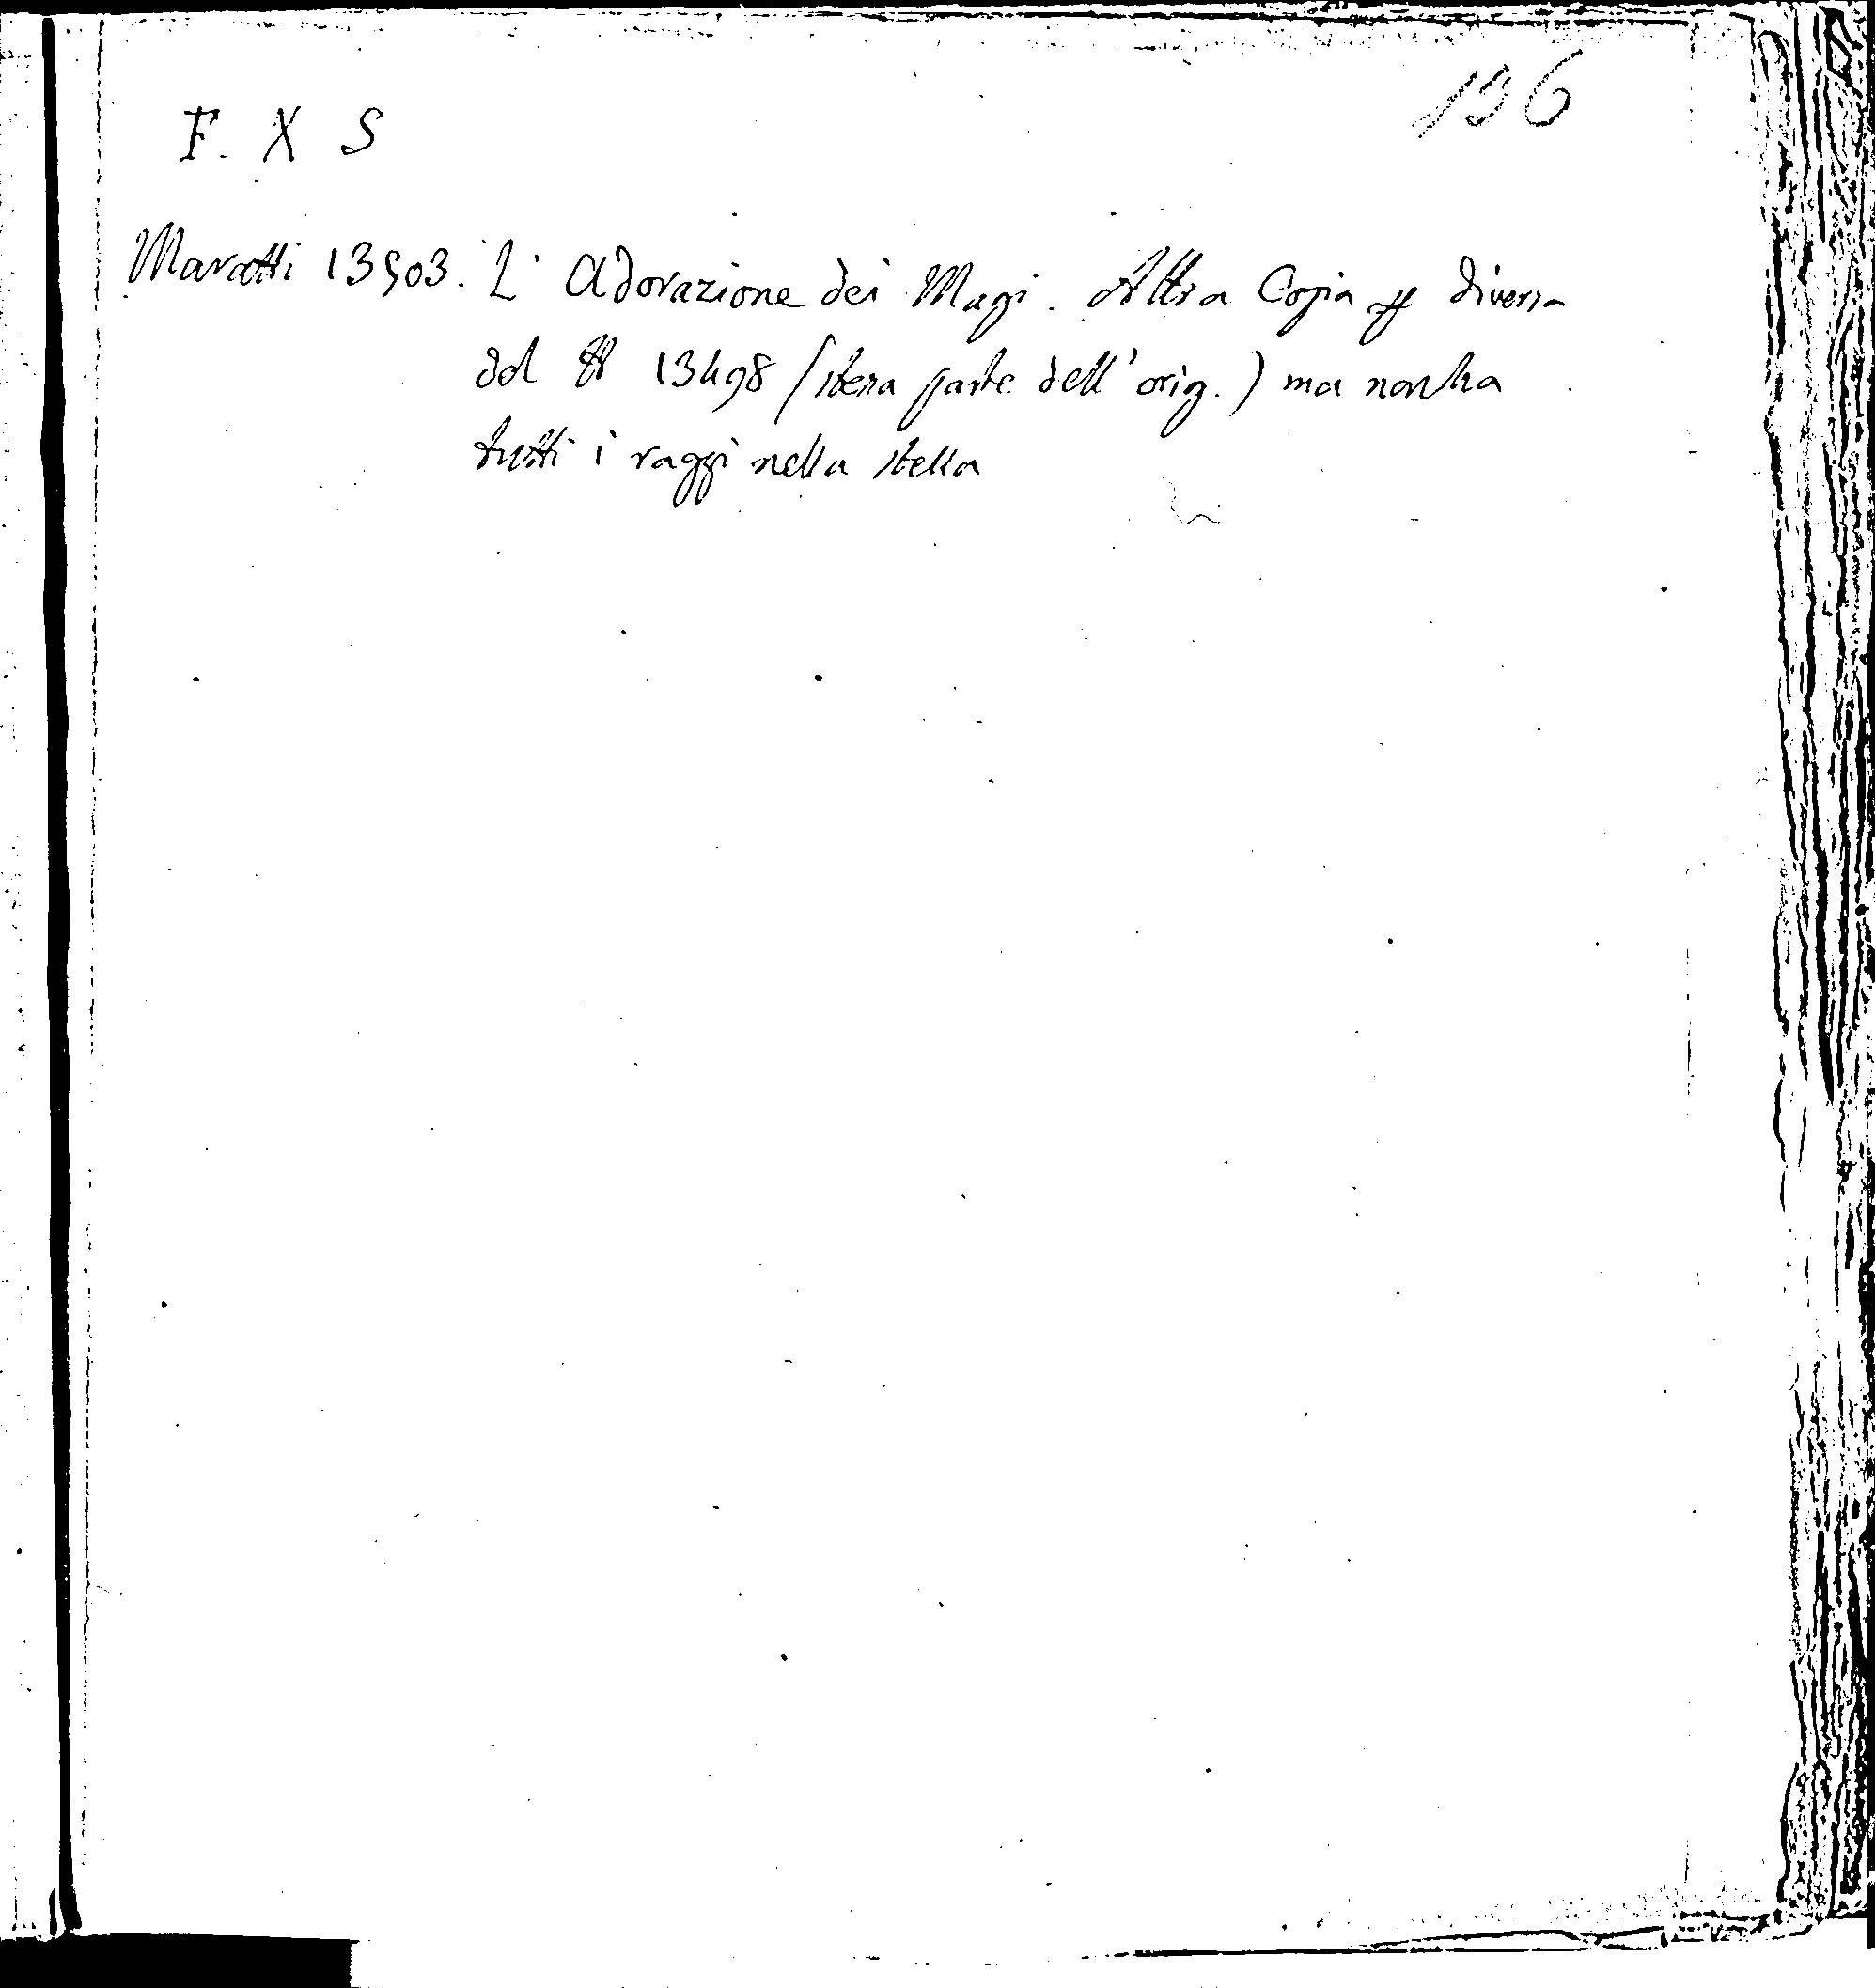 136
F. X S
Maratti 13503. L' Adorazione dei Magi. Altra Copia diversa
dal 13498 (stessa parte dell'orig.) ma non ha
tutti i raggi nella stella